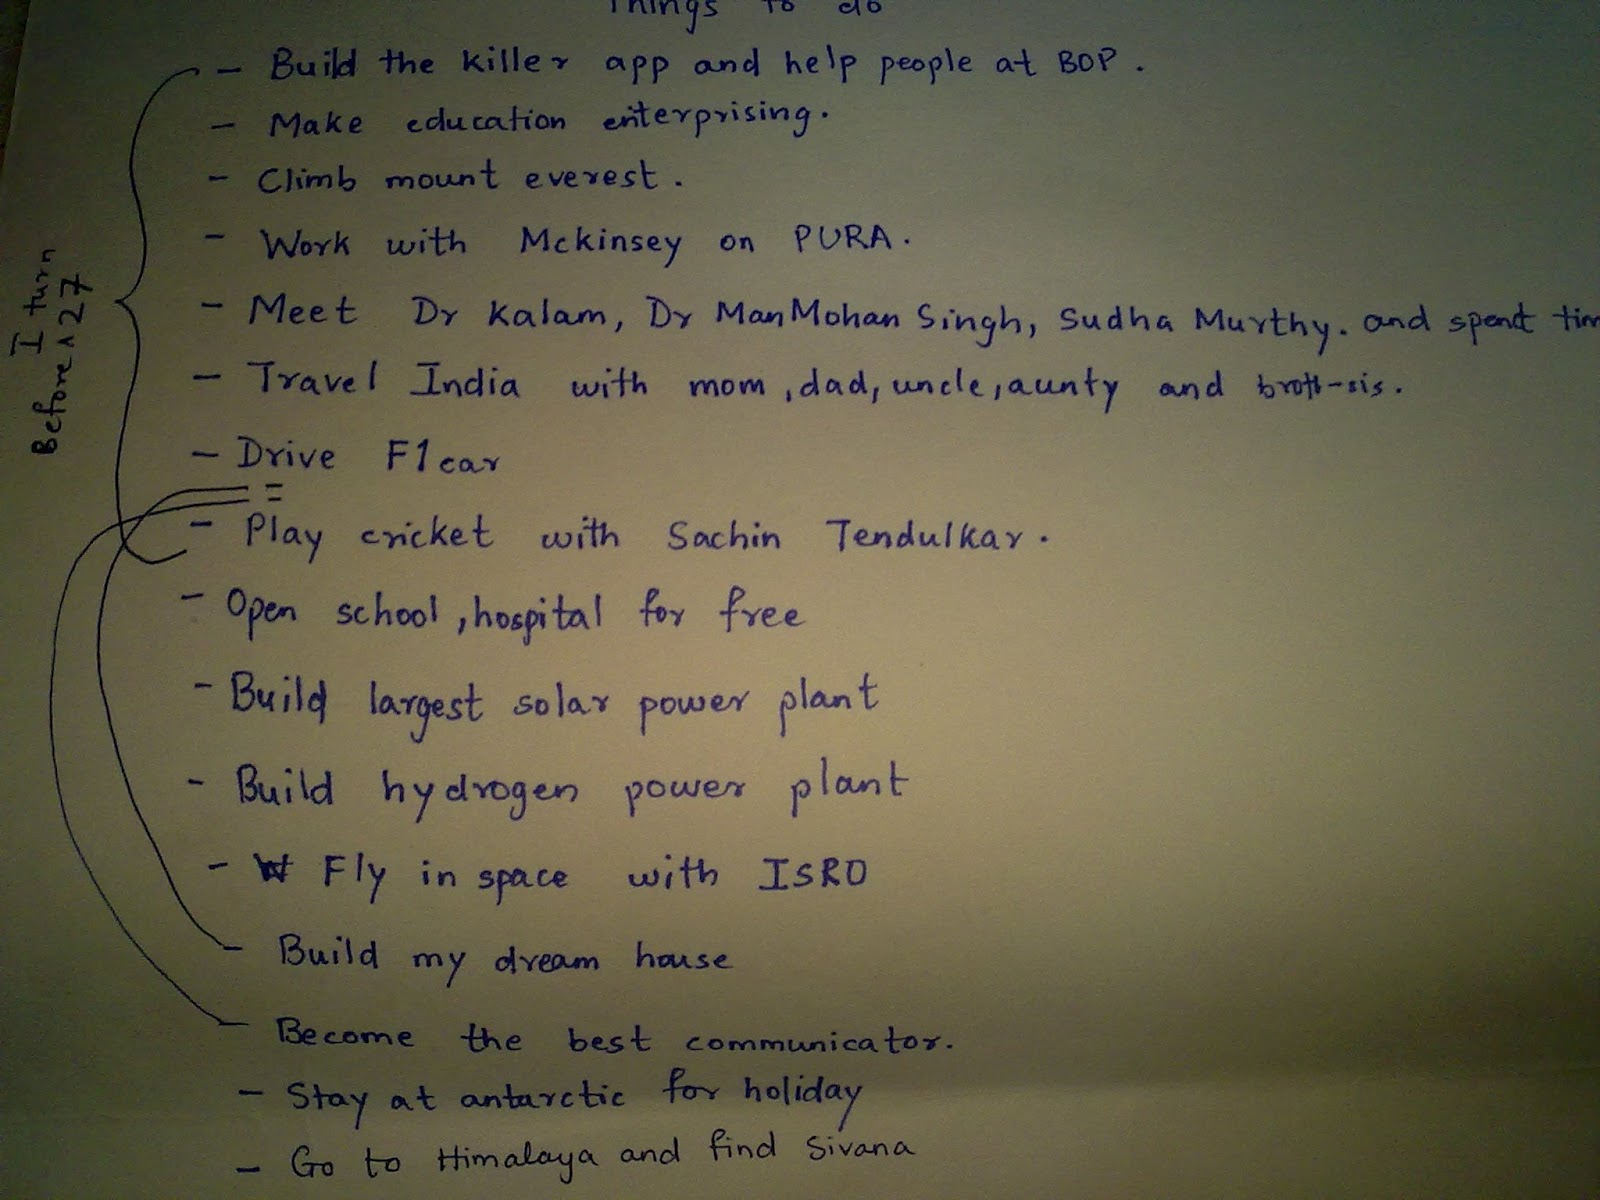 Things to do
- Build the killer app and help people at BOP.
- Make education enterprising.
- Climb mount everest.
- Work with Mckinsey on PURA.
- Meet Dr Kalam, Dr ManMohan Singh, Sudha Murthy. and spend tim
- Travel India with mom, dad, uncle, aunty and broth-sis.
- Drive F1 car
=
- Play cricket with Sachin Tendulkar.
- Open school, hospital for free
- Build largest solar power plant
- Build hydrogen power plant
- Fly in space with ISRO
- Build my dream house
- Become the best communicator.
- Stay at antarctic for holiday
- Go to Himalaya and find Sivana
Before I turn 27